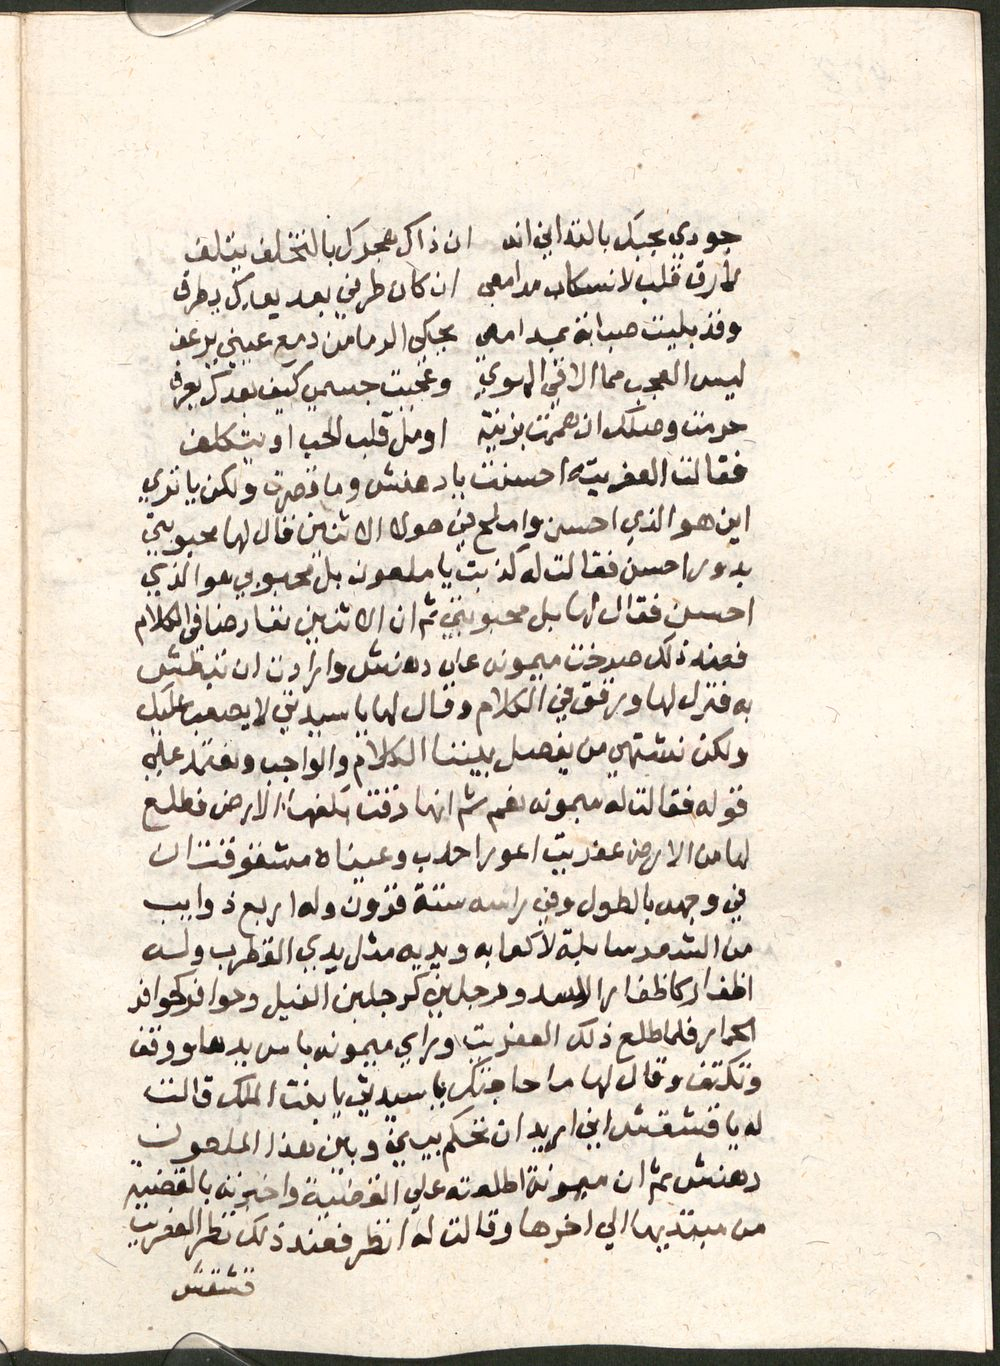 جودي بحبك بالتداني انه ان ذاك هجرك بالتخلف يتلف
لم ارق قلب لانسكاب مدامعي ان كان طرفي بعد بعدك يطرف
وقد بليت صبابة بمدامعي يحكي الدما من دمع عيني يرعف
ليس العجب مما الاقي الهوي وعجبت جسمي كيف بعدك يعرف
حرمت وصلك ان هممت بزينة او مل قلب الحب او يتكلف
فقالت العفريته احسنت يا دهنش وما قصرت ولكن يا تري
اين هو الذي احسن واملح من هولا الاثنين قال لها محبوبتي
بدورا احسن فقالت له كذبت يا ملعون بل محبوبي هو الذي
احسن فقال لها بل محبوبتي ثم ان الاثنين تعارضا في الكلام
فعند ذلك صرخت ميمونه علي دهنش وارادت ان تبطش
به فتزل لها ورقق في الكلام وقال لها يا سيدتي لا يصعب عليك
ولكن نشتهي من يفصل بيننا الكلام والواجب ونعتمد عليه
قوله فقالت له ميمونه نعم ثم انها دقت بكفها الارض فطلع
لها من الارض عفريت اعور احدب وعيناه مشقوقتان
في وجهه بالطول وفي راسه ستة قرون وله اربع ذوايب
من الشعر سابلة لاكعابه ويديه مثل يدي القطرب وله
اظفار كاظفار الاسد ورجلين كرجلين الفيل وحوافر كحوافر
الحمار فلما طلع ذلك العفريت وراي ميمونه باس يدها ووقف
وتكتف وقال لها ما حاجتك يا سيدتي يا بنت الملك قالت
له يا قشقش اني اريد ان تحكم بيني وبين هذا الملعون
دهنش ثم ان ميمونة اطلعته علي القضية واخبرته بالقضية
من مبتديها الي اخرها وقالت له انظر فعند ذلك نظر العفريت
قشقش